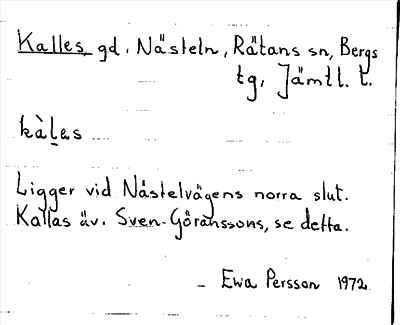 Kalles, gd. Nästeln, Rätans sn, Bergs
tg, Jämtl. l.
kàl̲as
Ligger vid Nästelvägens norra slut.
Kallas äv. Sven-Göranssons, se detta.
– Ewa Persson 1972